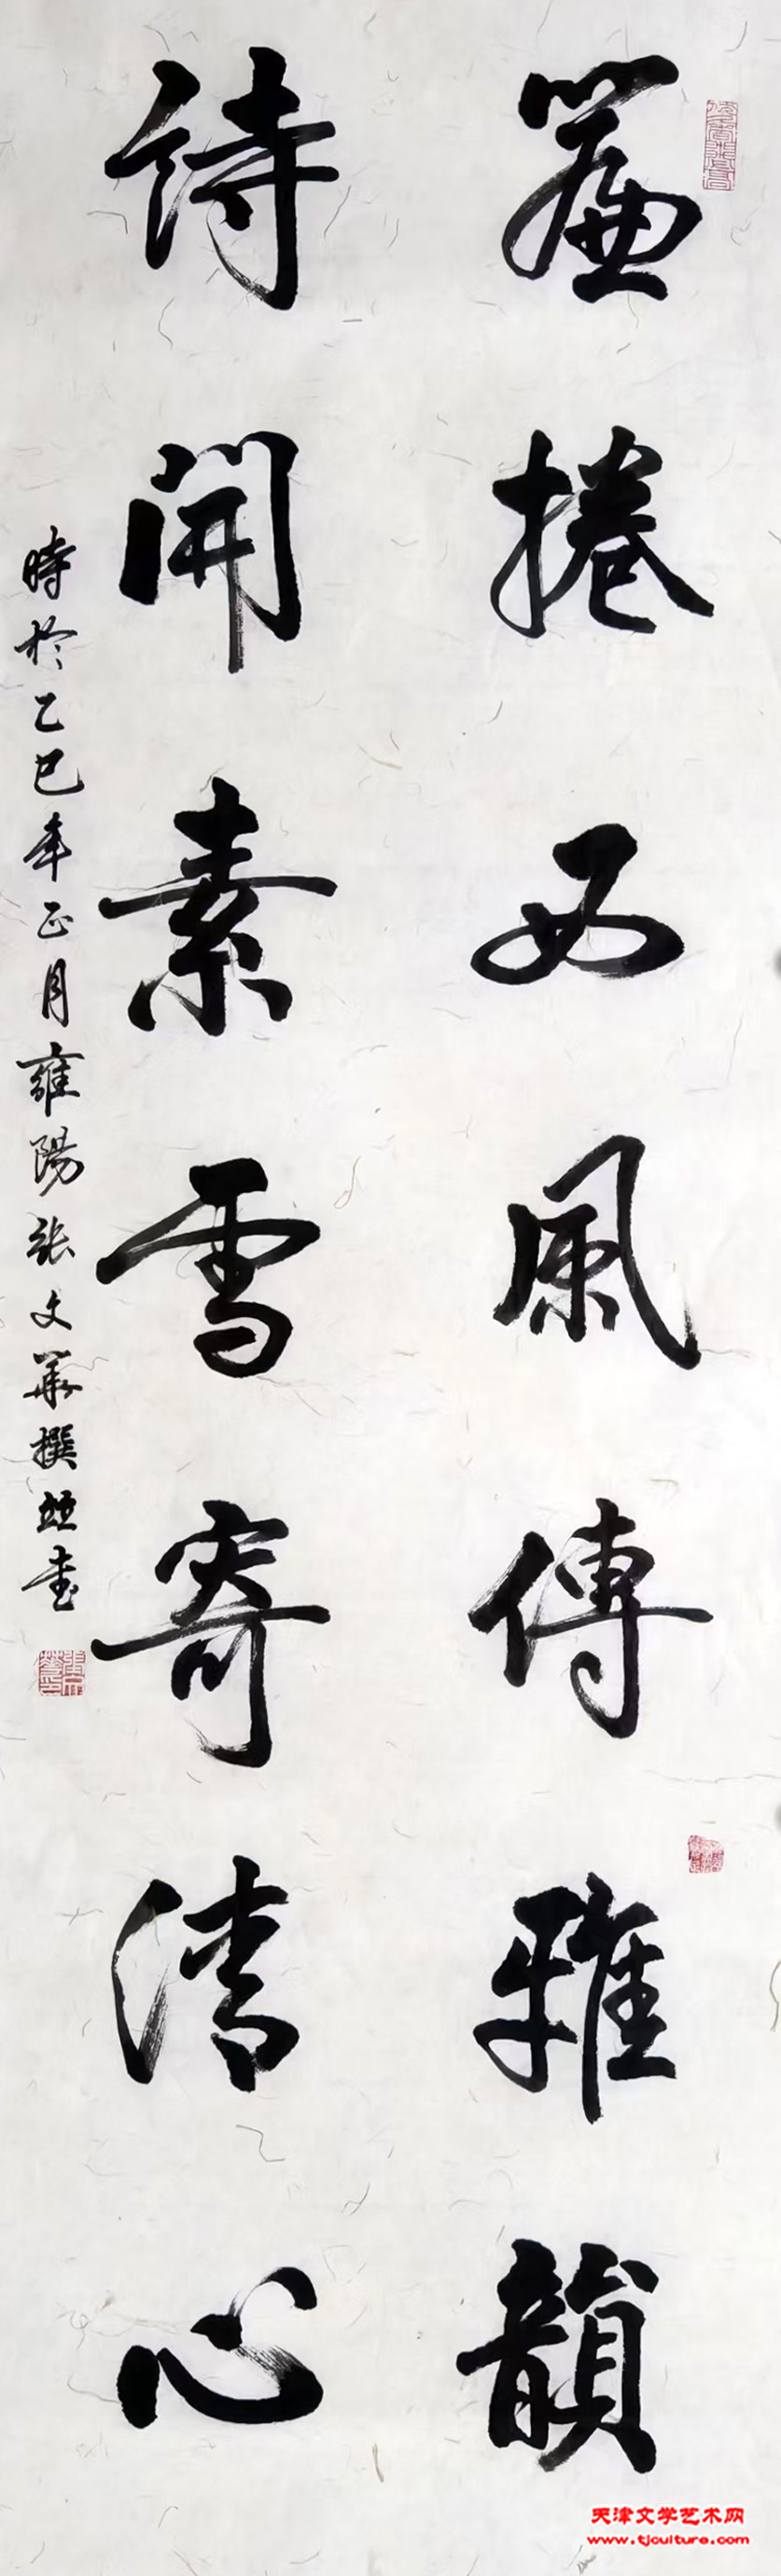 簾捲西風傳雅韻
詩開素雪寄清心
時於乙巳年正月雍陽張文華撰並書
天津文学艺术网
www.tjculture.com